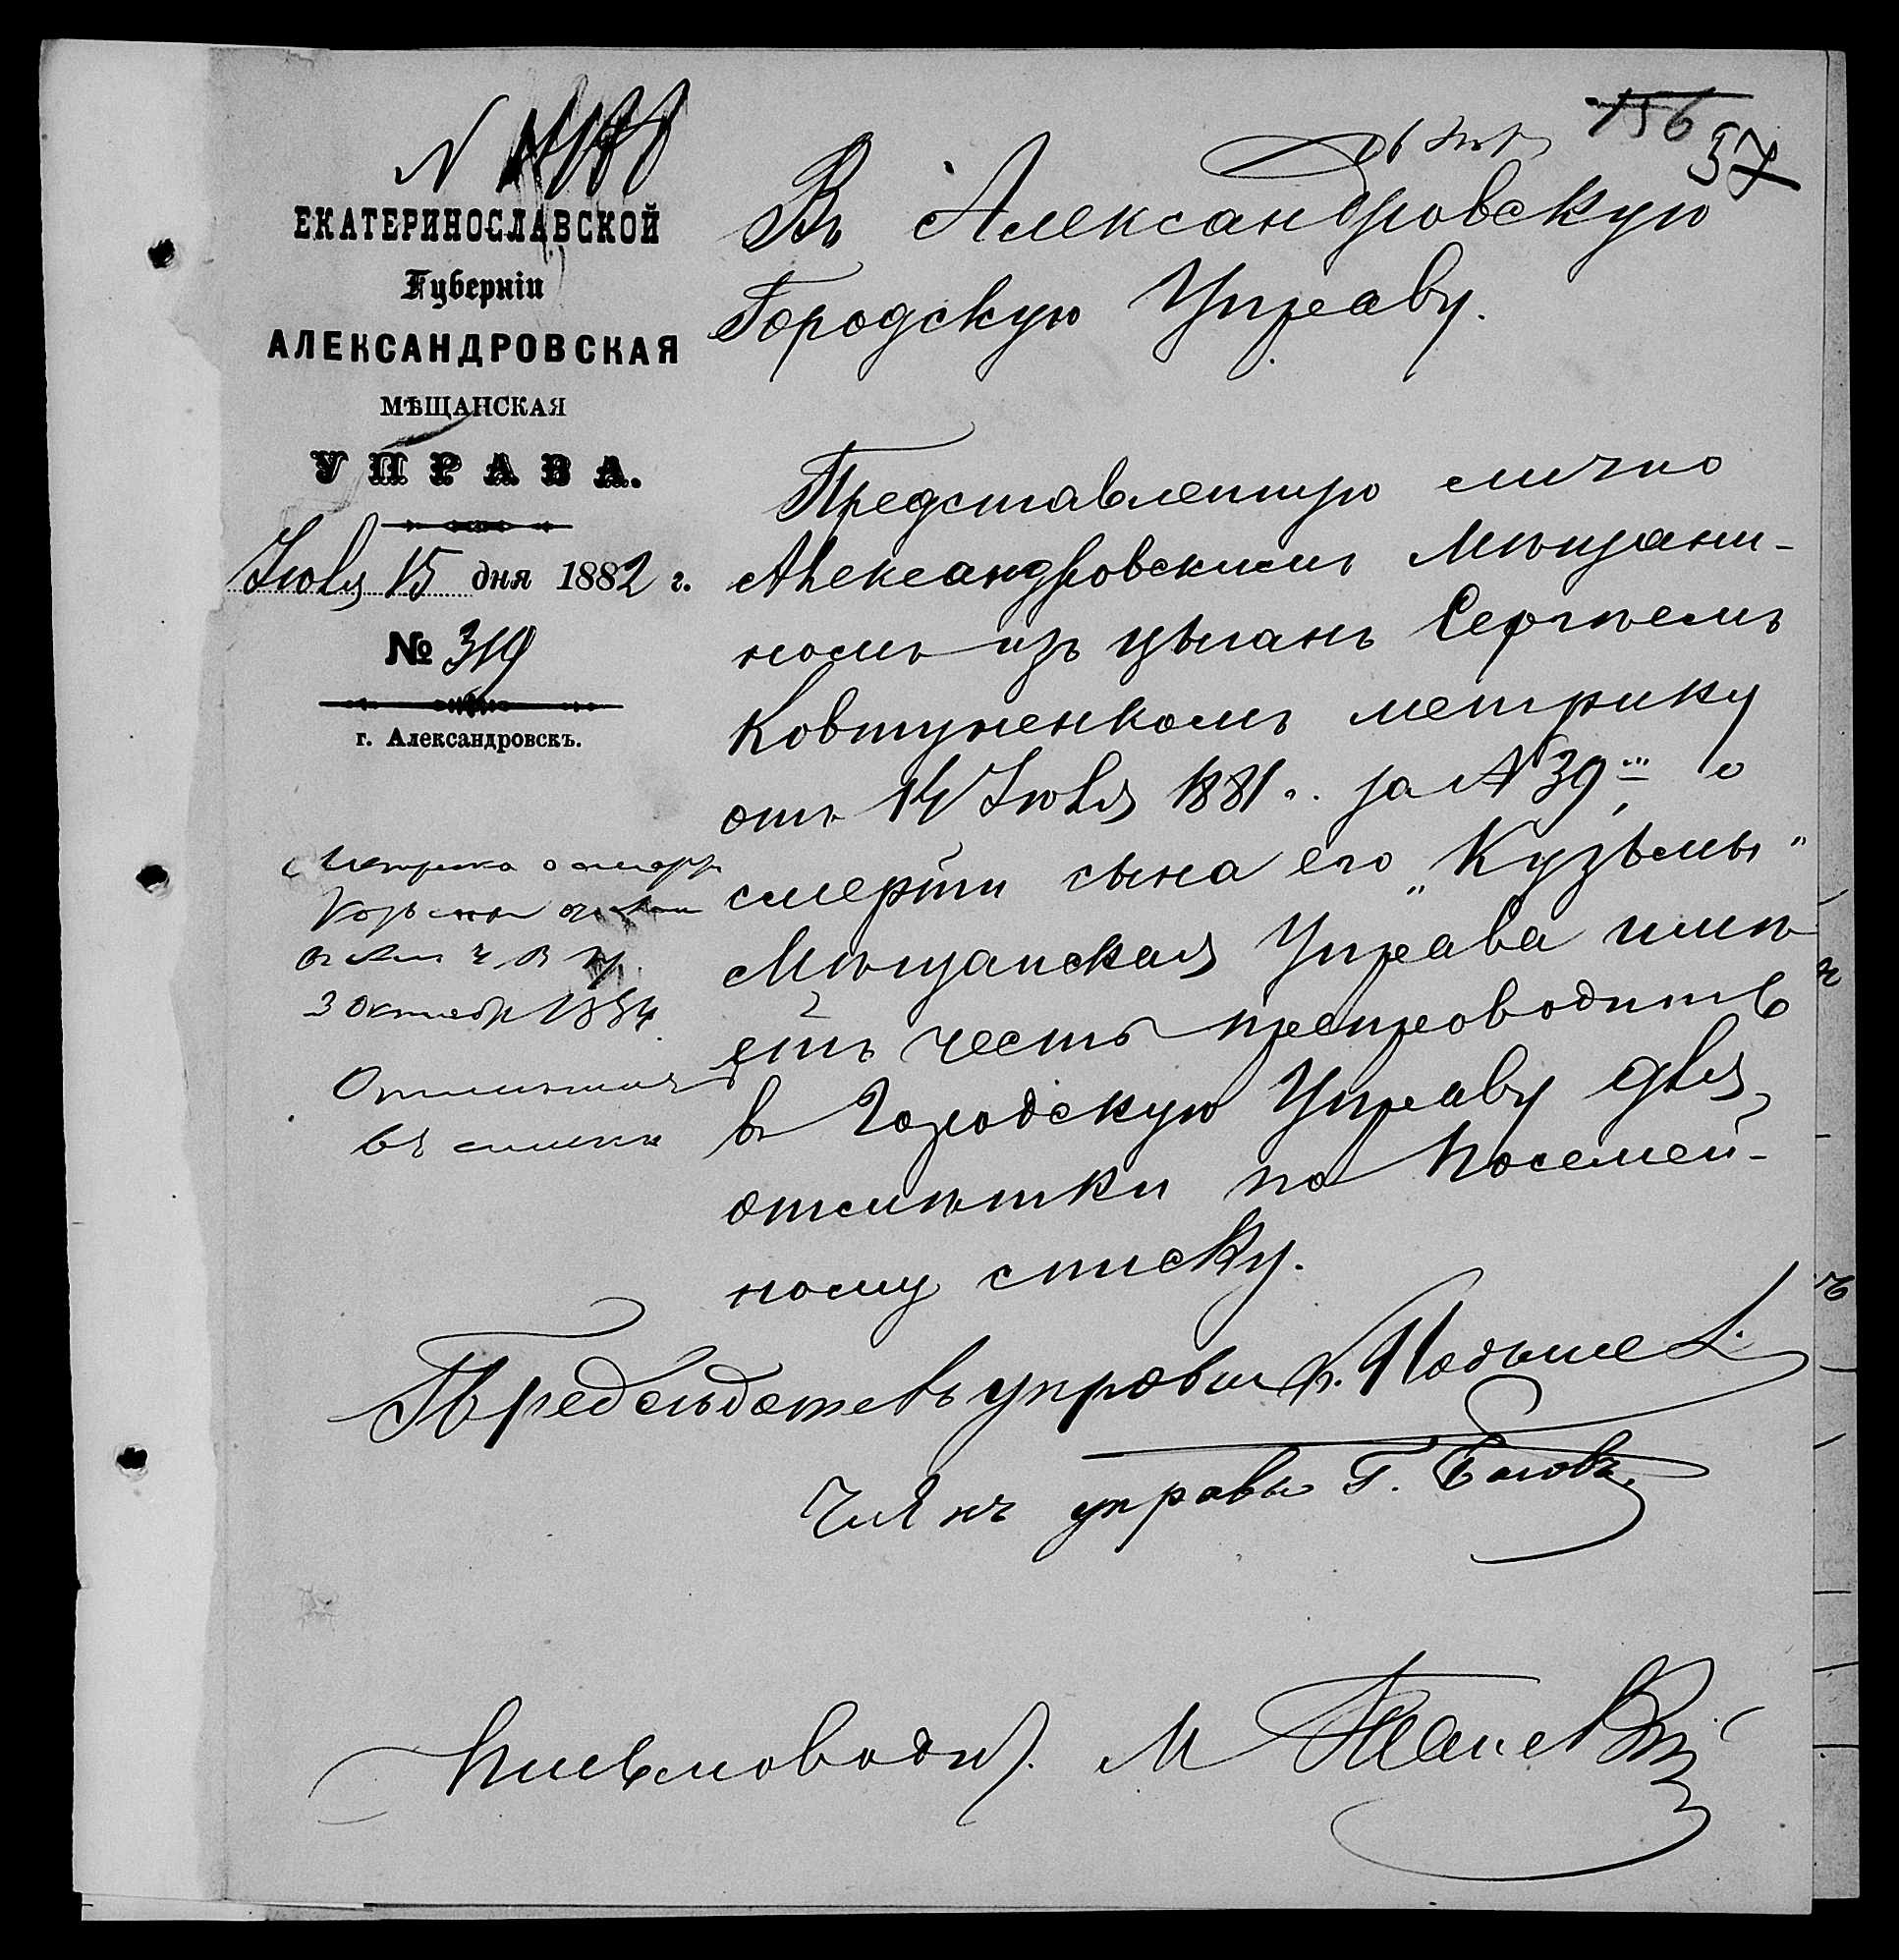 156
57
ЕКАТЕРИНОСЛАВСКОЙ
Губерніи
АЛЕКСАНДРОВСКАЯ
МѢЩАНСКАЯ
УПРАВА.
Іюля 15 дня 1882 г.
№ 319
г. Александровскъ.
Въ Александровскую
Городскую Управу.
Представленную лично
Александровскимъ Мѣщани-
номъ изъ цыганъ Сергѣемъ
Ковтуненкомъ метрику
отъ 14 Іюля 1881 г. за № 39, о
смерти сына его „Кузьмы"
Мѣщанская Управа имѣ
етъ честь препроводить
въ Городскую Управу для
отмѣтки по Посемей-
ному списку.
Метрика о смерти
Кузьмы
3 Октября 1884
Отмѣтить
въ списки
Предсѣдатель управы
Членъ управы Г.
Письмоводи. М